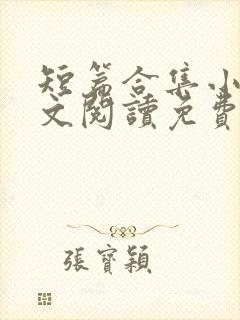 短篇合集小
文閱讀免費
張寶穎